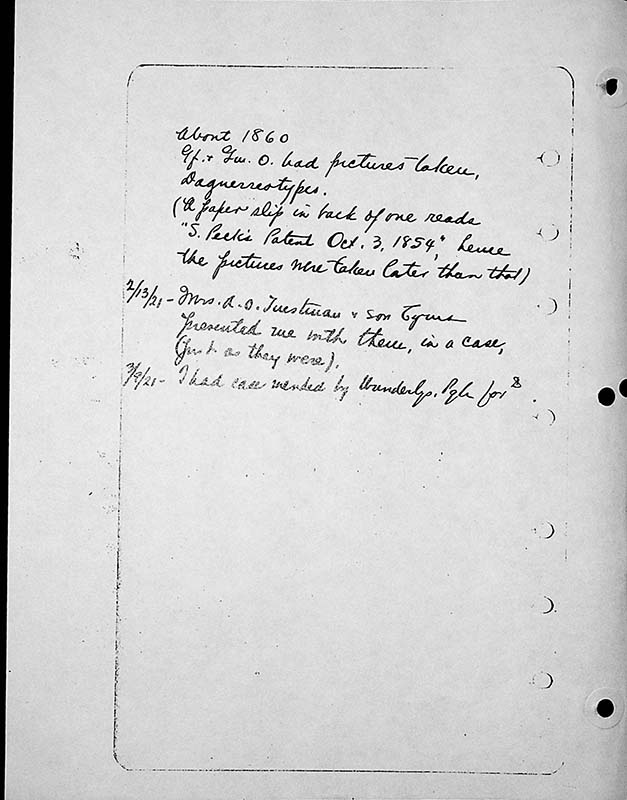 About 1860
Gf. + Gm. O. had pictures taken,
Daguerreotypes.
(A paper slip in back of one reads
"S. Peck's Patent Oct. 3, 1854," hence
the pictures were taken later than that)
2/13/21 - Mrs. A. O. & son
presented me with them, in a case,
(just as they were).
3/9/21 - I had case mended by Wunderlys, Pgh for $ .